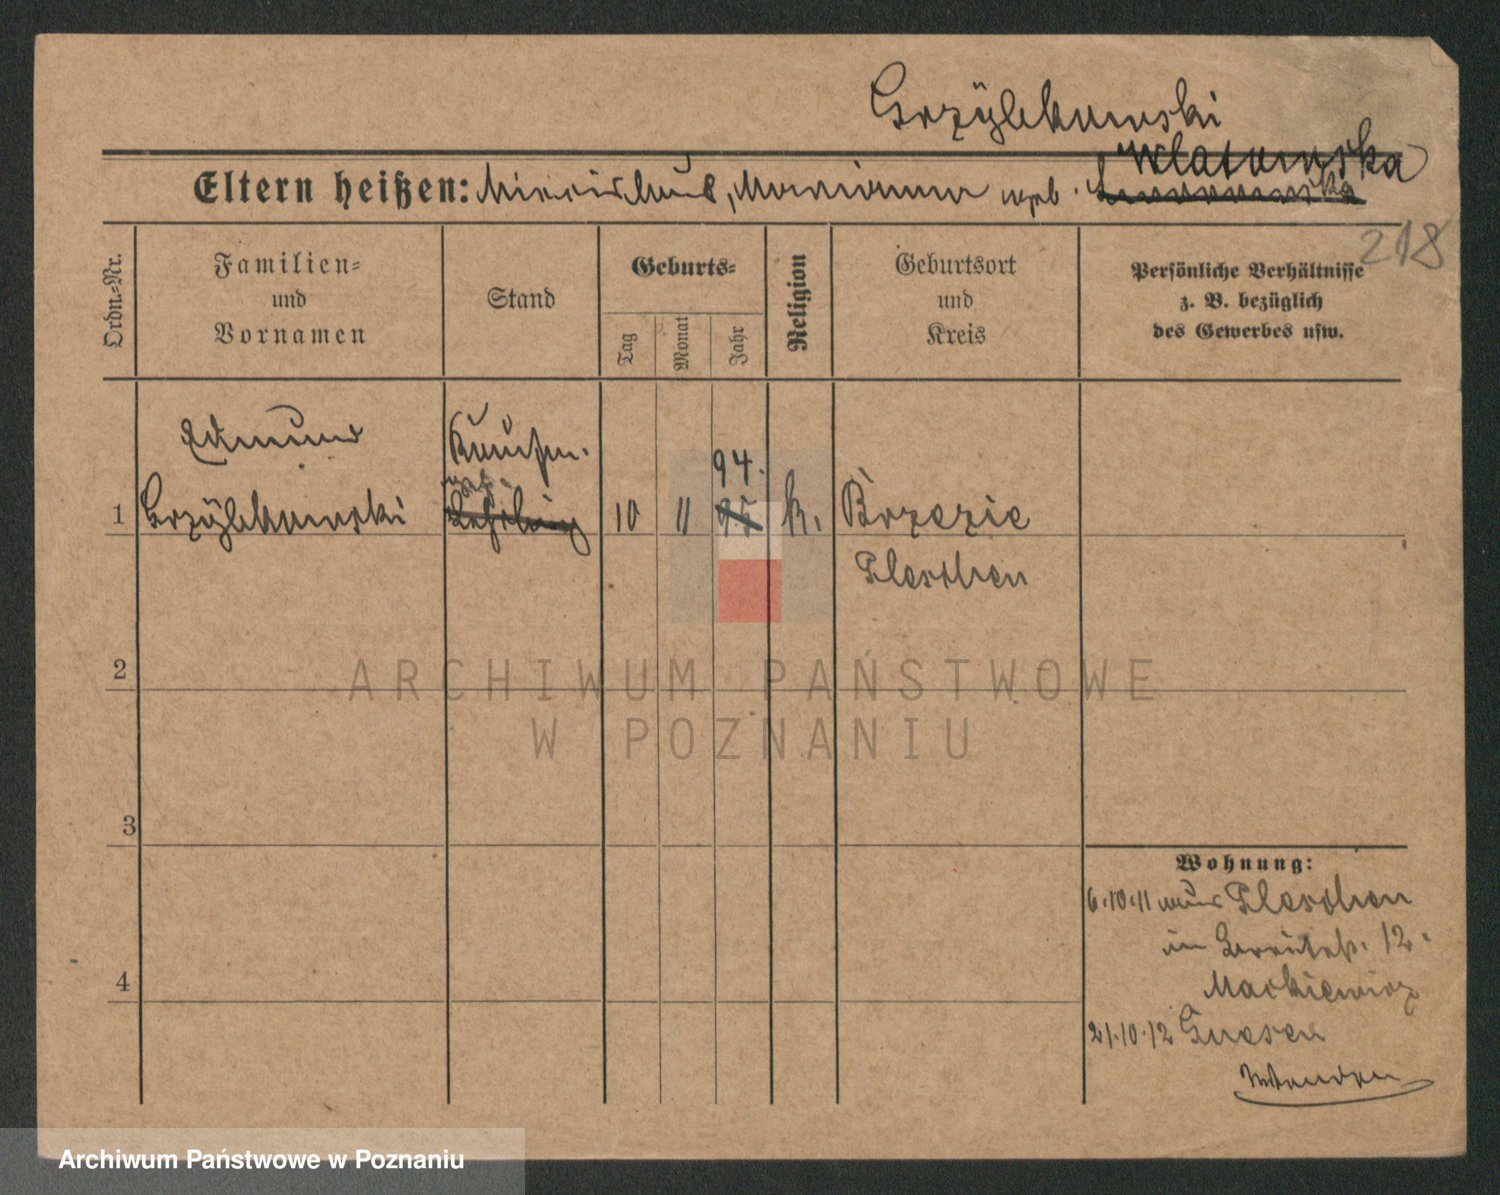 Grzybkowski
Wlatowska
Eltern heißen: Mieczislaus, Marianna geb.
218
Ordn.-Nr.
Familien-
und
Vornamen
Stand
Geburts-
Tag
Monat
Jahr
Religion
Geburtsort
und
Kreis
Persönliche Verhältnisse
z. B. bezüglich
des Gewerbes usw.
Edmund
Kaufm.
94.
1 Grzybkowski Lehrling 10 11 95 k. Brzezie
Pleschen
2
ARCHIWUM PAŃSTWOWE
W POZNANIU
3
Wohnung:
6.10.11 aus Pleschen
in Breitestr. 12.
Markiewicz
4
21.10.12 Gnesen
Wenden
Archiwum Państwowe w Poznaniu